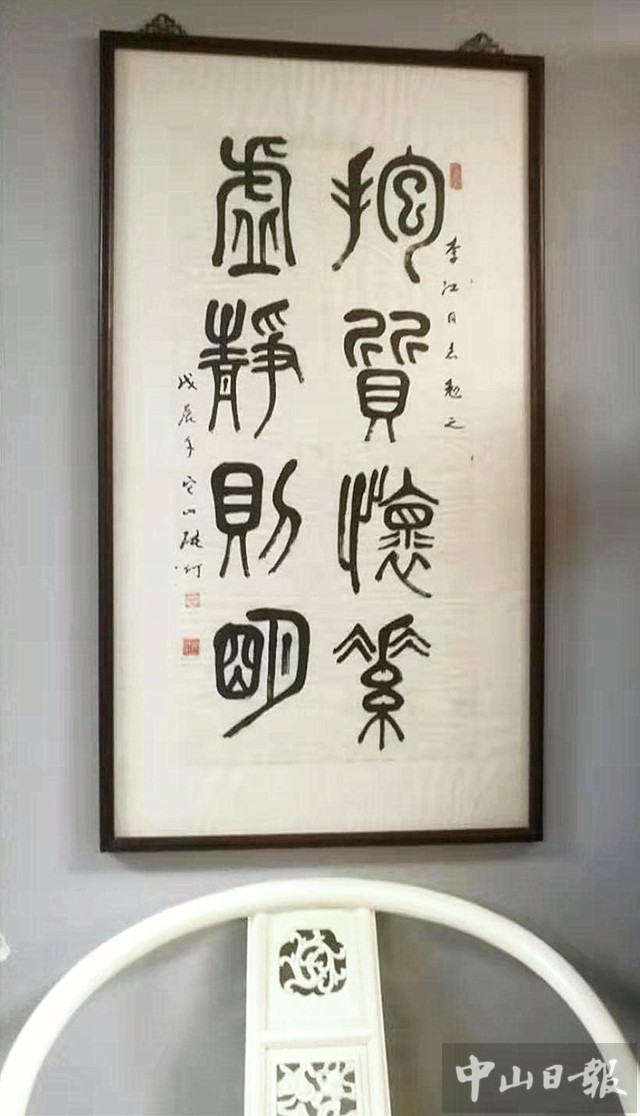 李江同志勉之
抱質懷素
虛靜則明
戊辰年
中山日報